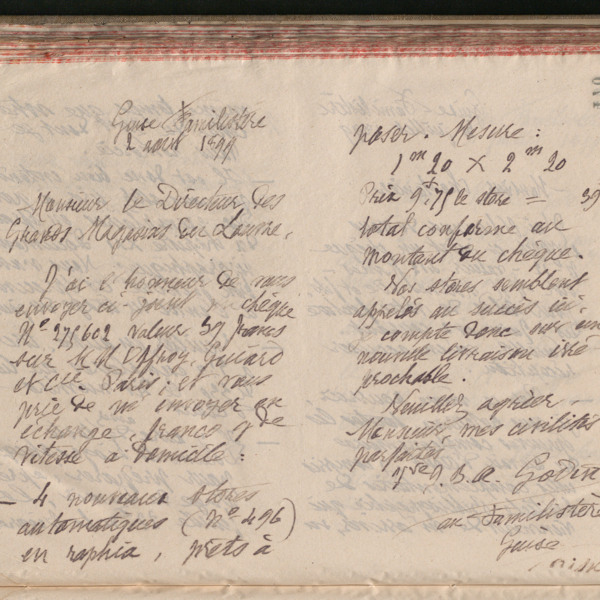 Guise Familistère
2 août 1899
Monsieur le Directeur des
Grands Magasins du Louvre,
J'ai l'honneur de vous
envoyer ci-joint chèque
N° 275602 valeur 39 francs
sur M.M. Offroy, Guiard
et Cie Paris; et vous
prie de m'envoyer en
échange, franco gde
vitesse à domicile :
— 4 nouveaux stores
automatiques (N° 496)
en raphia, prêts à
poser. Mesure :
1 m 20 X 2 m 20
Prix 9f,75 le store = 39
total conforme au
montant du chèque.
Vos stores semblent
appelés au succès ici.
compte donc sur une
nouvelle livraison irré
prochable.
Veuillez agréer,
Monsieur, mes civilités
parfaites,
Vve J. B. A. Godin
au Familistère
Guise